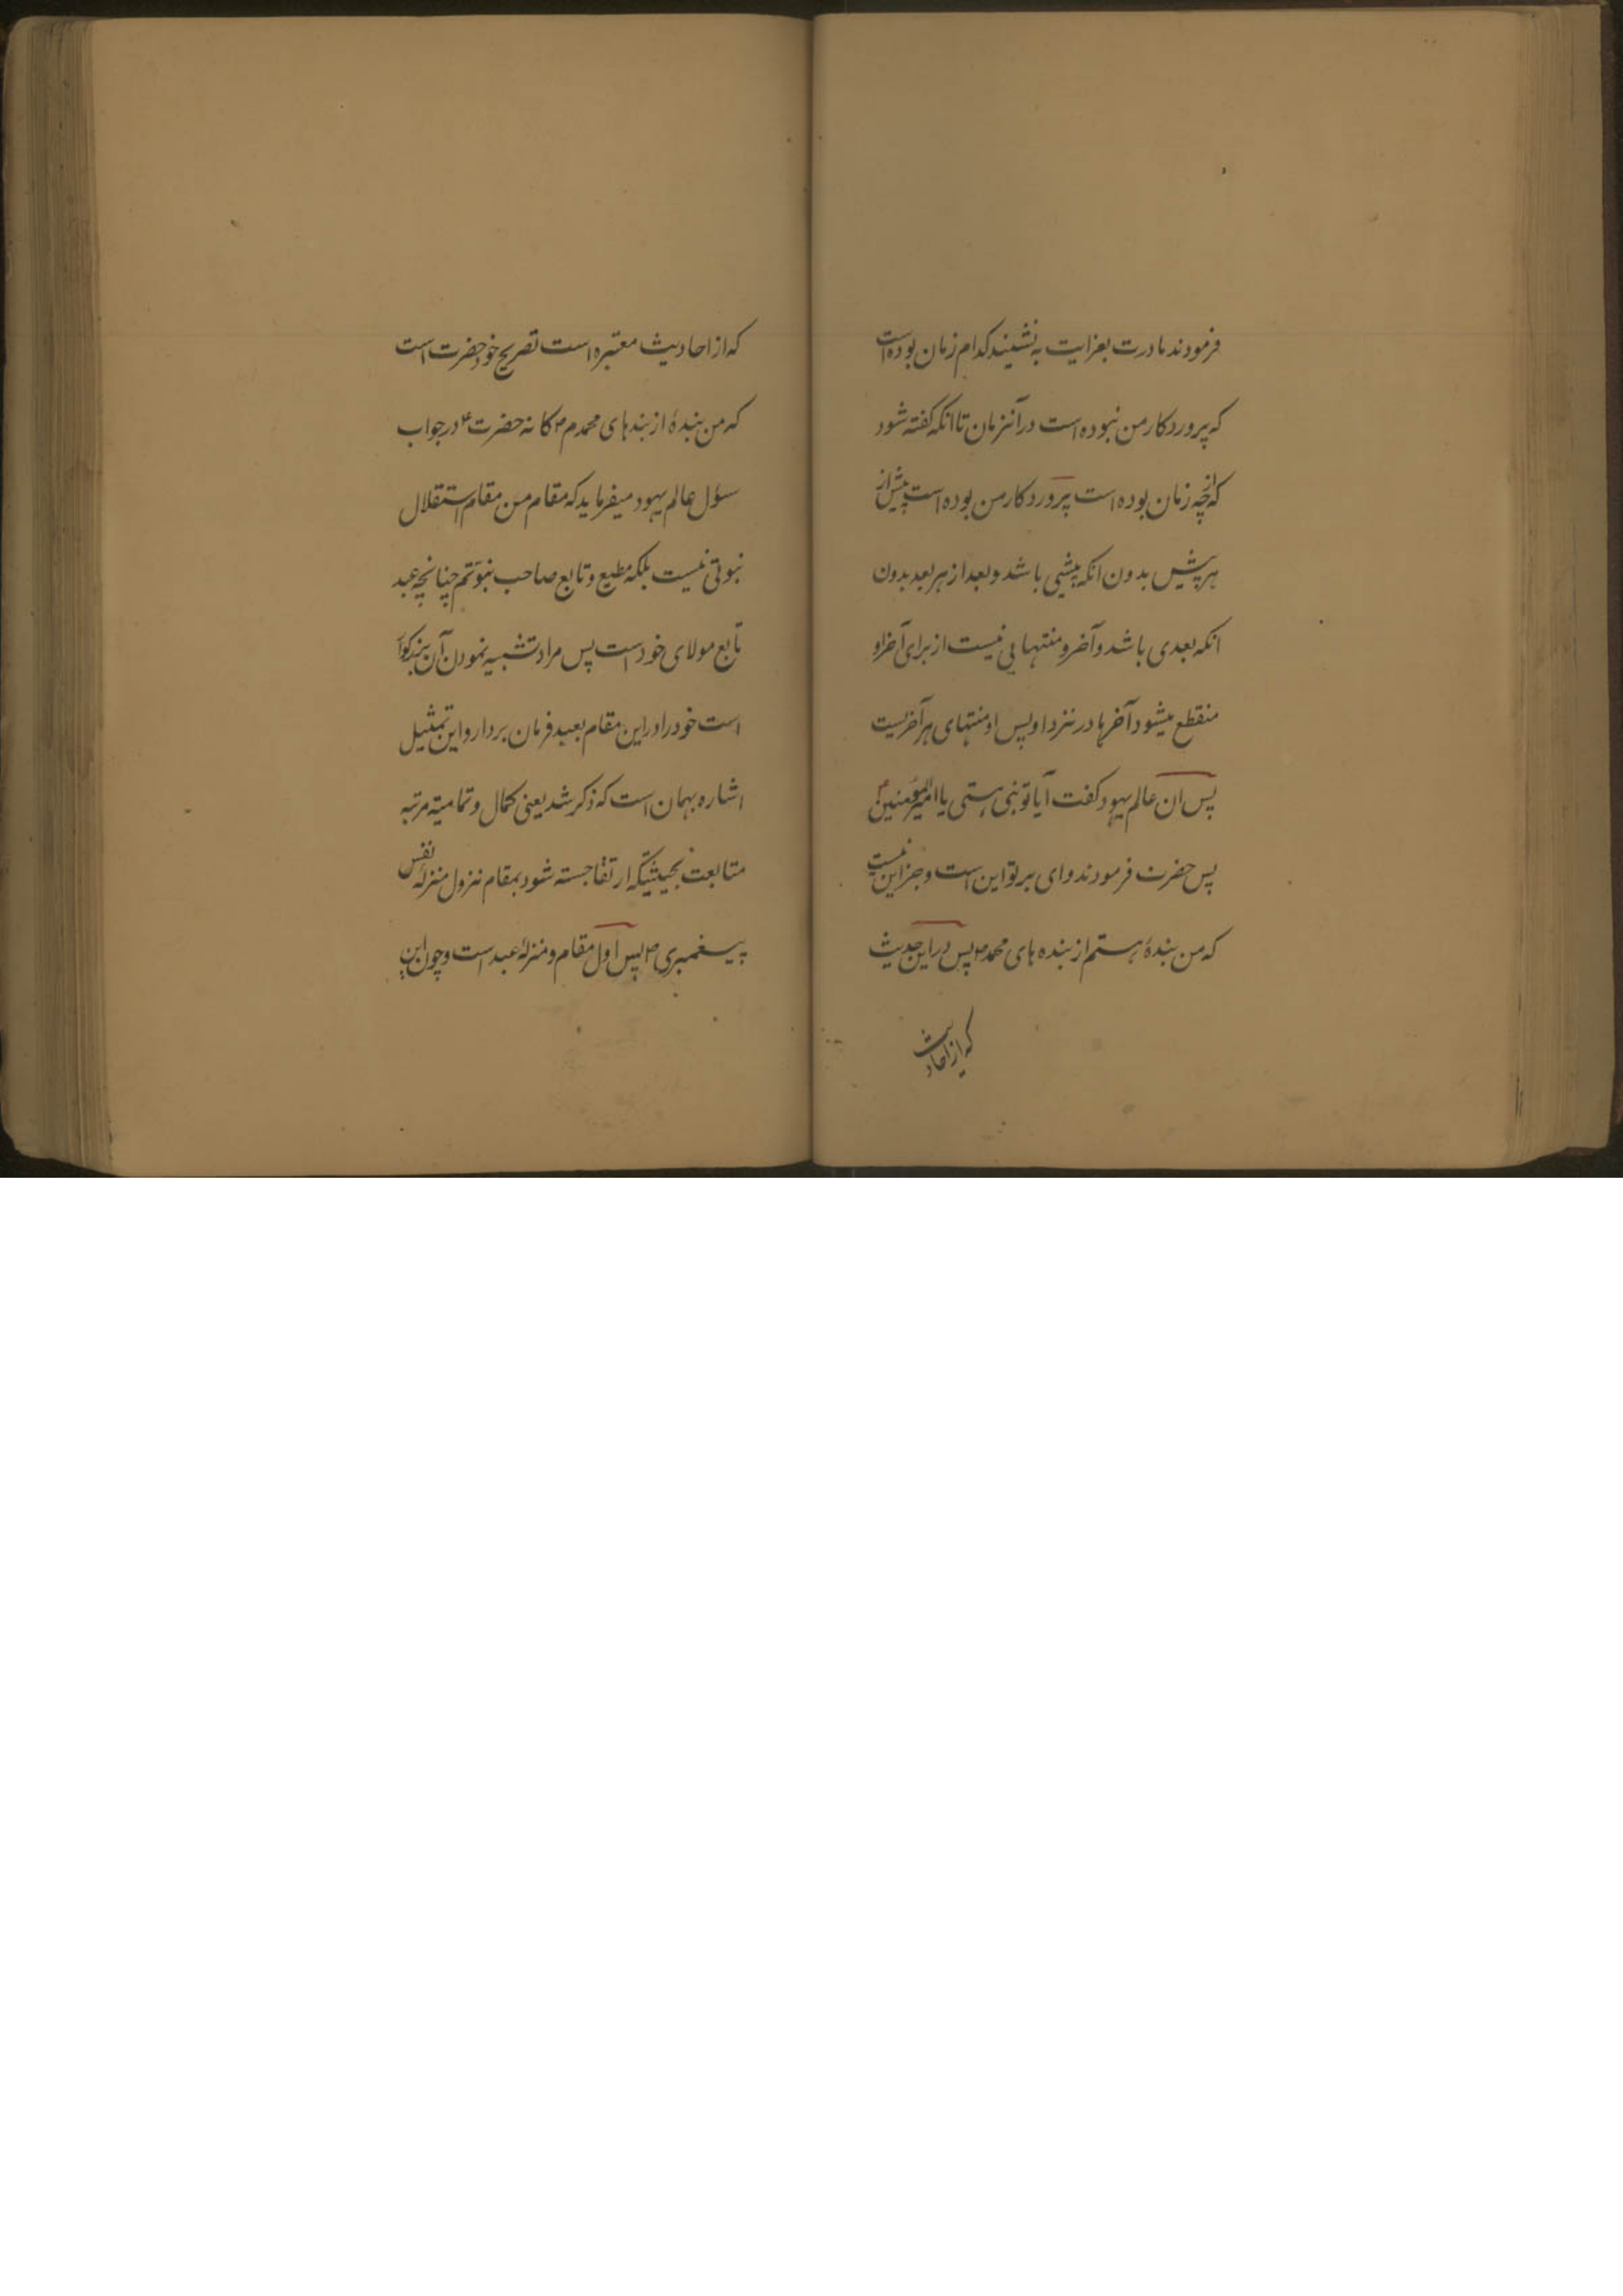 فرمودند مادرت بعزایت به نشیند کدام زمان بوده است
که پروردکار من نبوده است در آنزمان تا انکه کفته شود
که از چه زمان بوده است پروردکار من بوده است پیش از
هر پیش بدون انکه پیشی باشد و بعد از هر بعد بدون
انکه بعدی باشد و آخر و منتهایی نیست از برای آخر او
منقطع میشود آخرها در نزد او پس او منتهای هر آخریست
پس ان عالم یهود کفت آیا تو نبی هستی یا امیرالمؤمنین ع
پس حضرت فرمودند وای بر تو این است و جز این نیست
که من بندهٔ هستم از بنده های محمد ص پس در این حدیث
که از احادیث
که از احادیث معتبره است تصریح خود حضرت است
که من بندهٔ از بندهای محمدم ص کانه حضرت ع در جواب
سؤل عالم یهود میفرماید که مقام من مقام استقلال
نبوتی نیست بلکه مطیع و تابع صاحب نبوتم چنانچه عبد
تابع مولای خود است پس مراد تشبیه نمودن آن بزرکوار
است خود را در این مقام بعبد فرمان بردار و این تمثیل
اشاره بهمان است که ذکر شد یعنی کمال و تمامیته مرتبه
متابعت بحیثیتیکه ارتقا جسته شود بمقام نزول منزلهٔ نفس
پیغمبری ص پس اول مقام و منزلهٔ عبد است و چون این